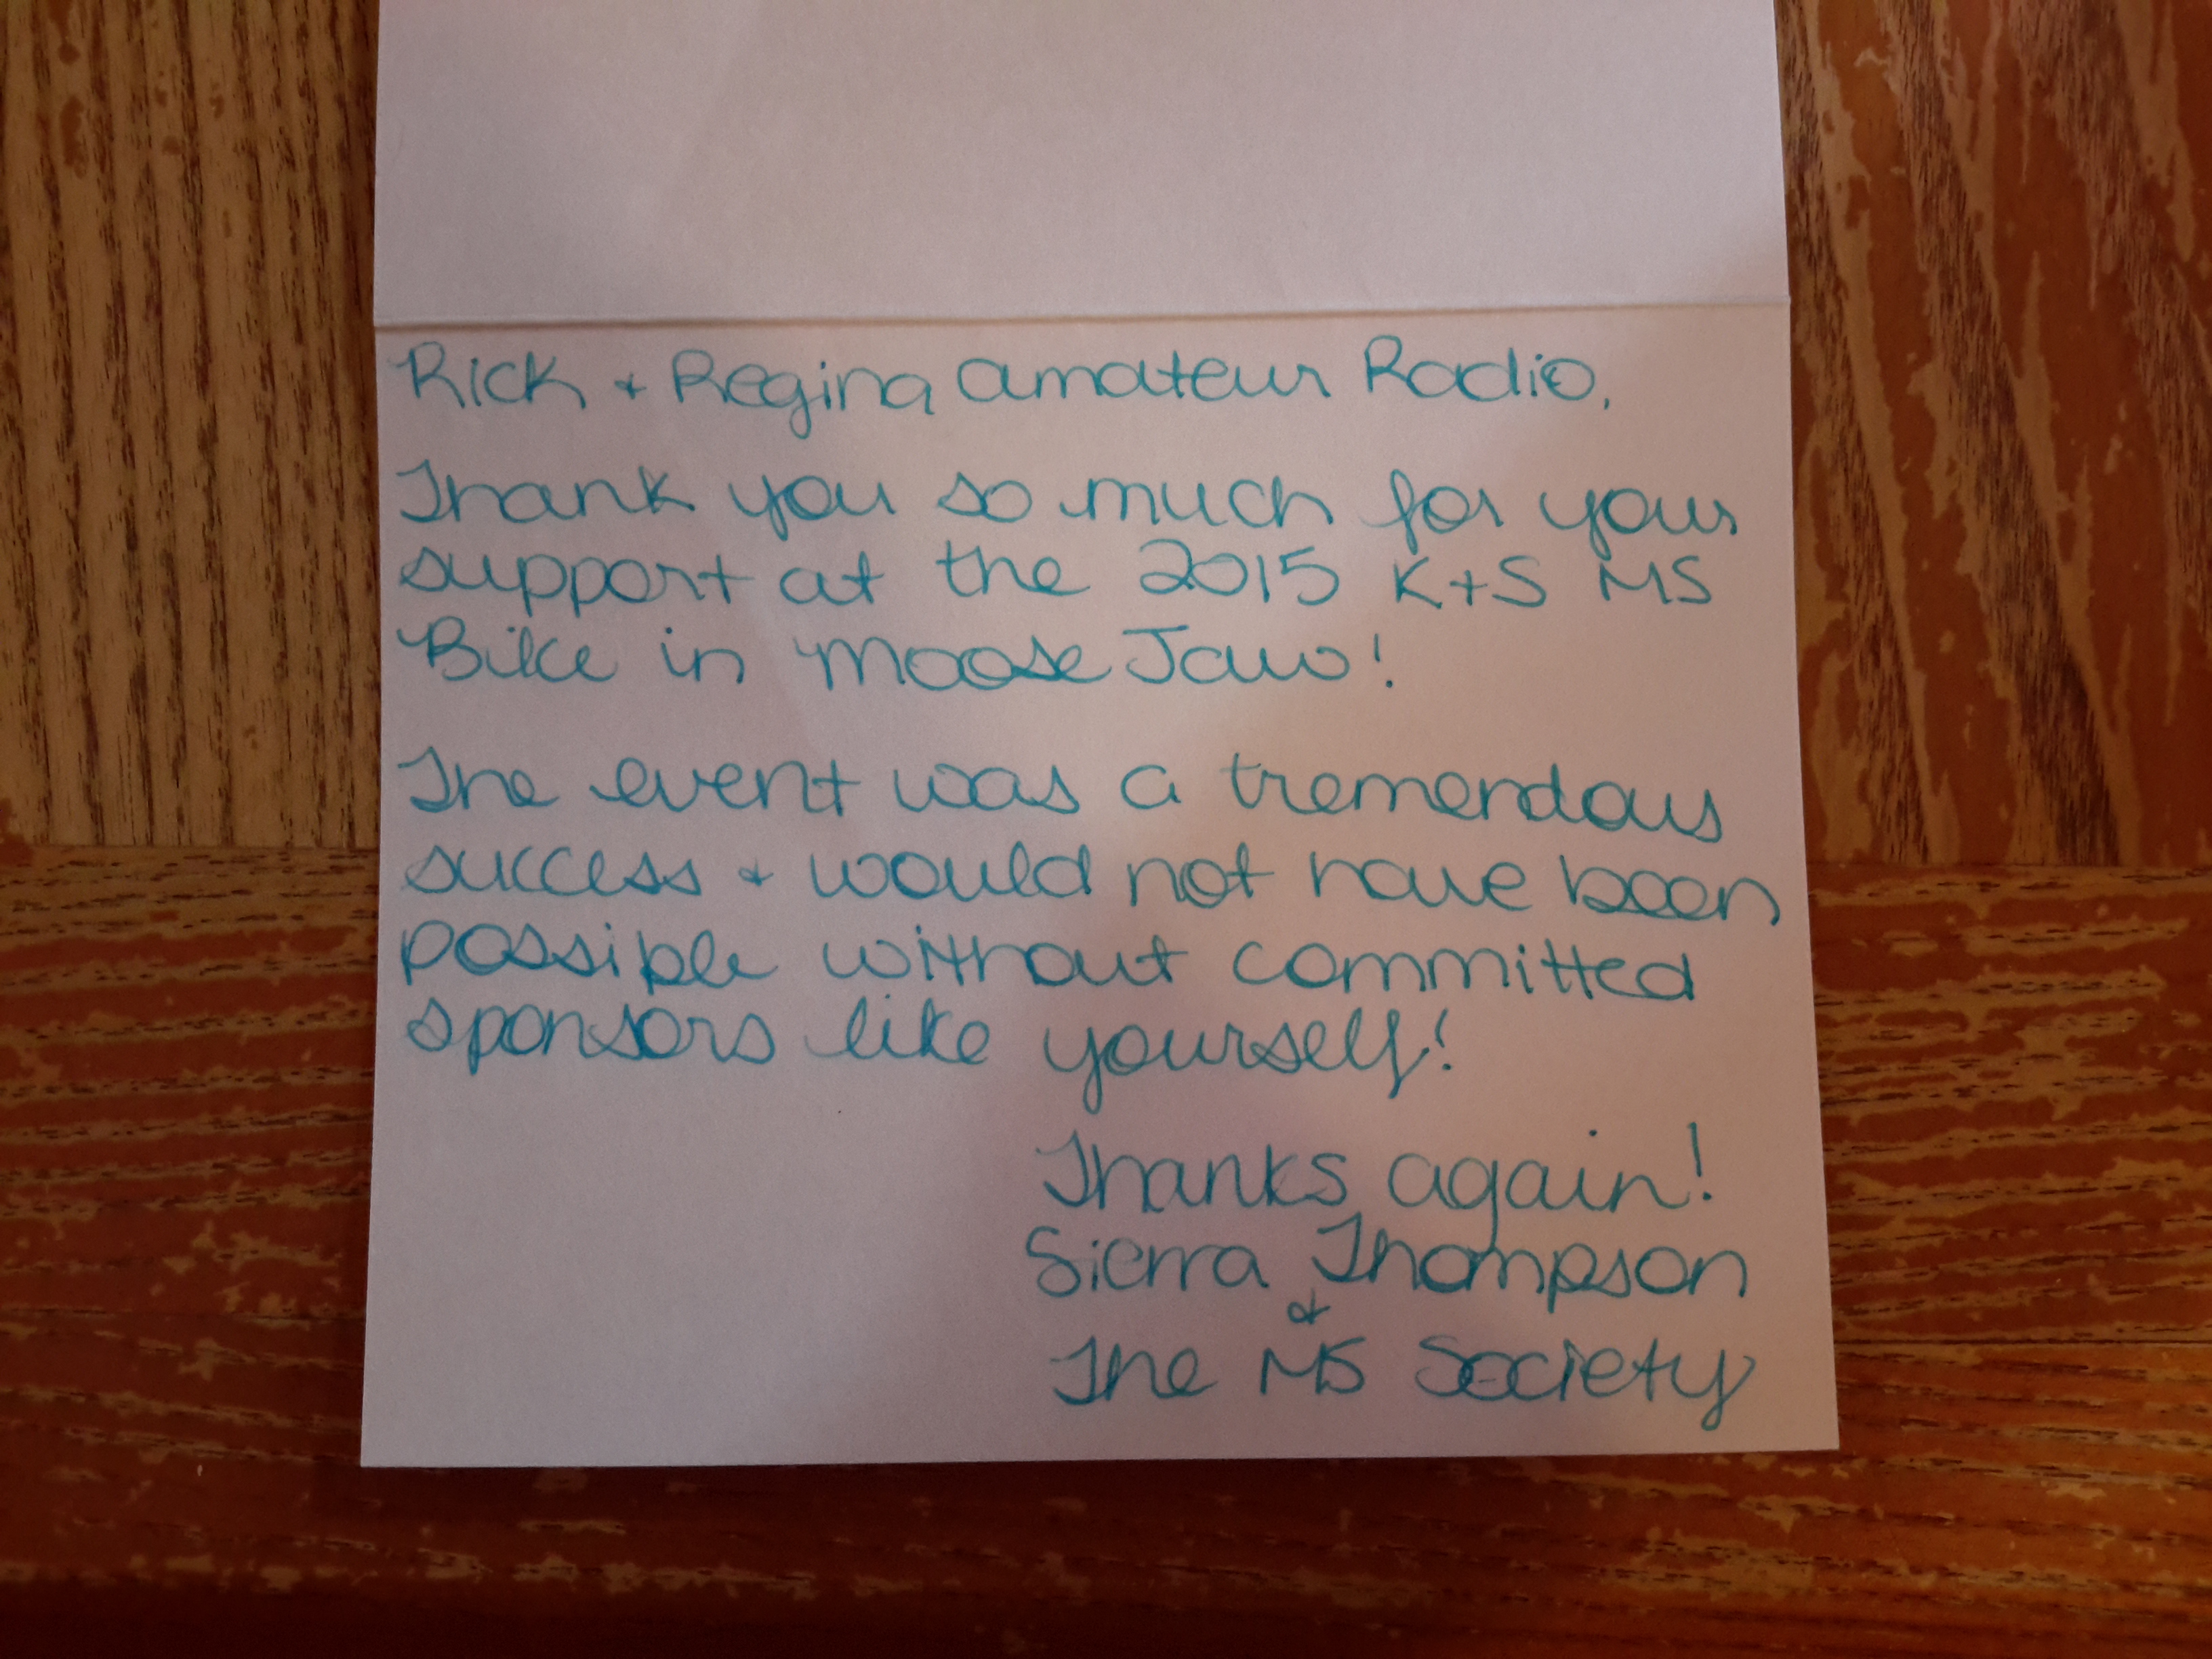 Rick + Regina amateur Radio,
Thank you so much for your
support at the 2015 K+S MS
Bike in Moose Jaw!
The event was a tremendous
success + would not have been
possible without committed
sponsors like yourself!
Thanks again!
Sierra Thompson
&
The MS Society